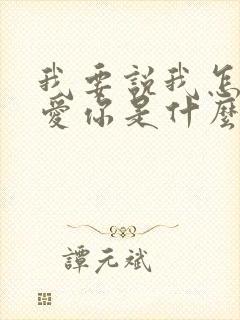 我要說我怎
愛你是什麼
譚元斌